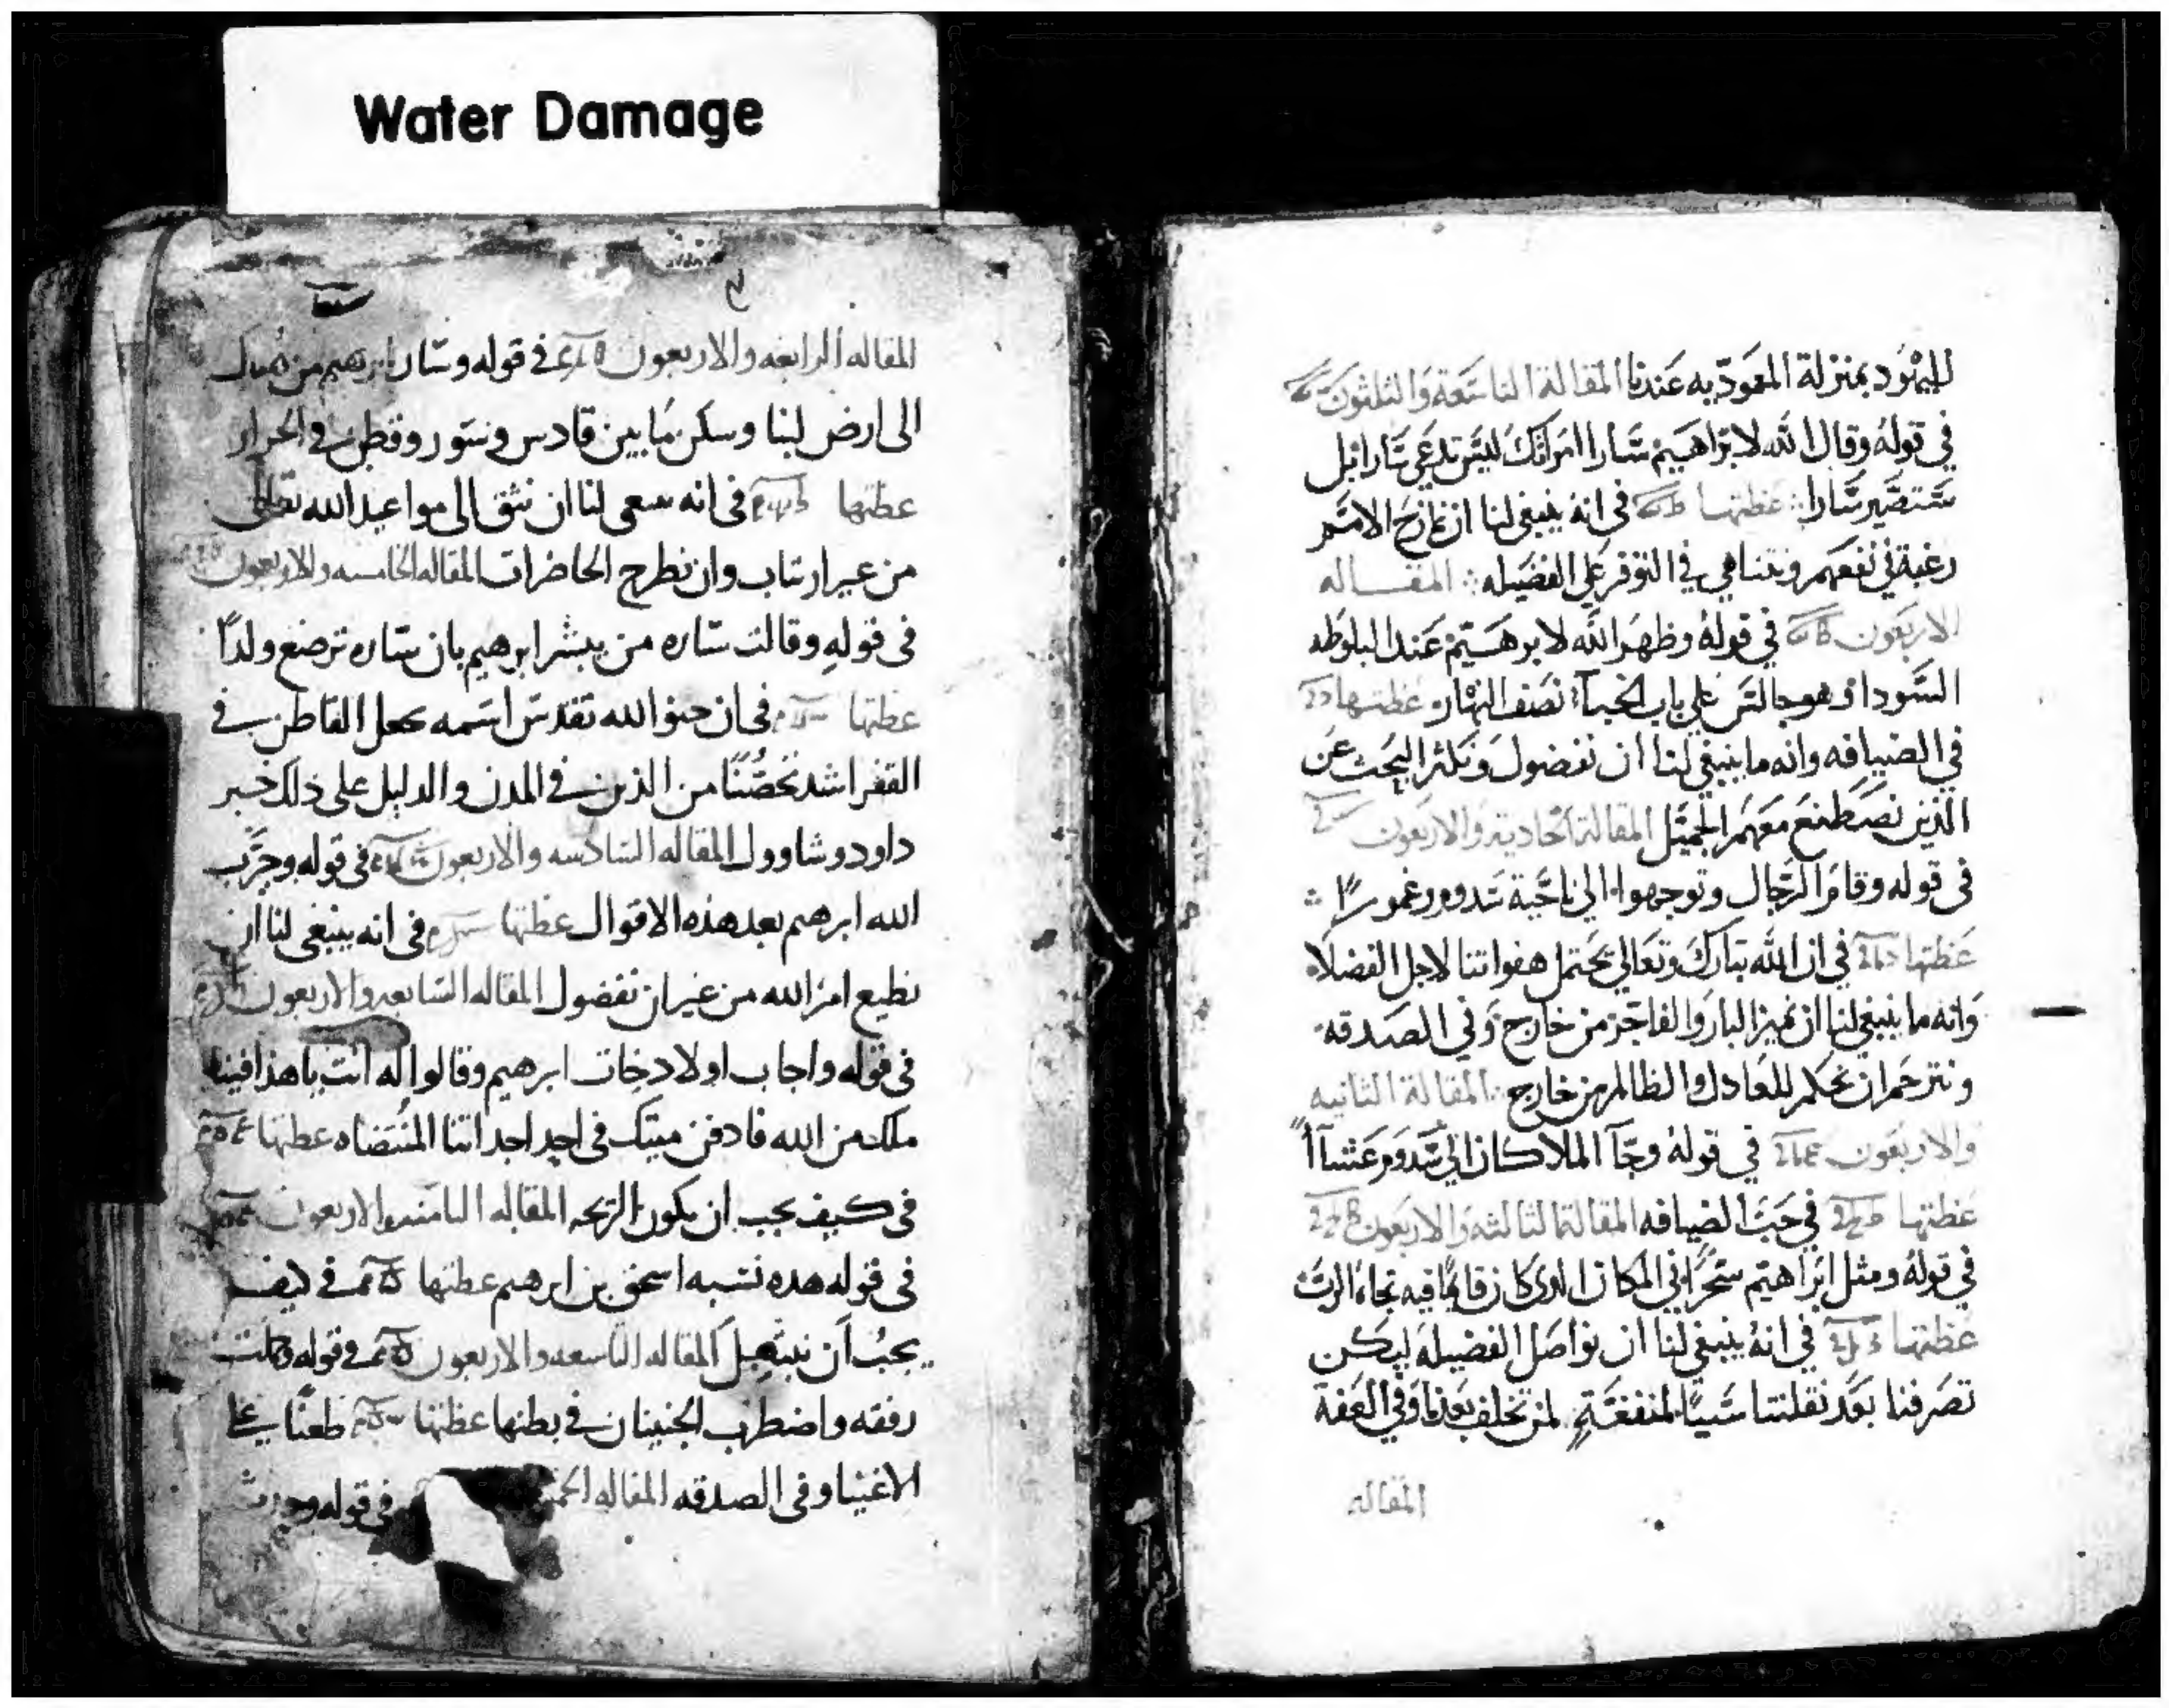 Water Damage
لليهود بمنزلة المعمودية عندنا المقالة التاسعة والثلثون
في قوله وقال الله لابراهيم سارا امراتك ليس تدعي سارا بل
ستصير سارا عظتها في انه ينبغي لنا ان نمازح الامم
رغبة في نفعهم ونتناهي في التوفر علي الفضيله المقاله
الاربعون في قوله وظهر الله لابرهيم عند البلوطه
السودا وهو جالس علي باب الخبآ نصف النهار عظتها
في الضيافه وانه ما ينبغي لنا ان نفضول ونكثر البحث عن
الذين نصطنع معهم الجميل المقالة الحادية والاربعون
في قوله وقام الرجال وتوجهوا الي ناحية سدوم وغمورا
عظتها في ان الله تبارك وتعالي يحتمل هفواتنا لاجل الفضلاء
وانه ما ينبغي لنا ان نميز البار والفاجر من خارج وفي الصدقه
ونترحم ان نحكم للعادل والظالم من خارج المقالة الثانيه
والاربعون في قوله وجآ الملاكان الي سدوم عشآأ
عظتها في حب الضيافه المقالة الثالثة والاربعون
في قوله ومثل ابراهيم سحرا في المكان الدي كان قايما فيه تجاه الرب
عظتها في انه ينبغي لنا ان نواصل الفضيله ليكن
تصرفنا بعد نقلتنا سببا لمنفعة لمن تخلف بعدنا وفي العفة
المقاله
المقاله الرابعه والاربعون في قوله وسار ابرهيم من هناك
الى ارض لبنا وسكن ما بين قادس وسور وقطن في الحرار
عظتها في انه سعى لنا ان نثق الى مواعيد الله تعالى
من غير ارتياب وان نطرح الحاضرات المقاله الخامسه والاربعون
في قوله وقالت ساره من يبشر ابرهيم بان ساره ترضع ولداً
عظتها في ان حنو الله تقدس اسمه يجعل القاطن في
القفر اشد تحصُّنًا من الذين في المدن والدليل على ذلك خبر
داود وشاوول المقاله السادسه والاربعون في قوله وجرَّب
الله ابرهيم بعد هذه الاقوال عظتها في انه ينبغي لنا ان
نطيع امر الله من غير ان نفضول المقاله السابعه والاربعون
في قوله واجاب اولاد خات ابرهيم وقالوا له انت يا هذا فينا
ملك من الله فادفن ميتك في احد اجداثنا المُنتضاه عظتها
في كيف يجب ان يكون الزيجه المقاله الثامنه والاربعون
في قوله هده نسبه اسحق بن ابرهيم عظتها في كيف
يجب ان نبتهل المقاله التاسعه والاربعون في قوله وحبلت
رفقه واضطرب الجنينان في بطنها عظتها طعنًا على
الاغنيا وفي الصدقه المقاله في قوله وحدث